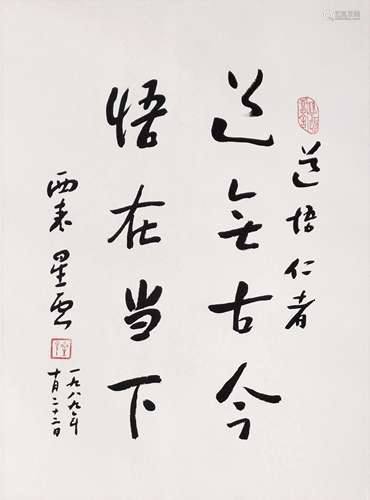 道悟仁者
道無古今
悟在当下
西来 星云
一九八九年
十月二十二日